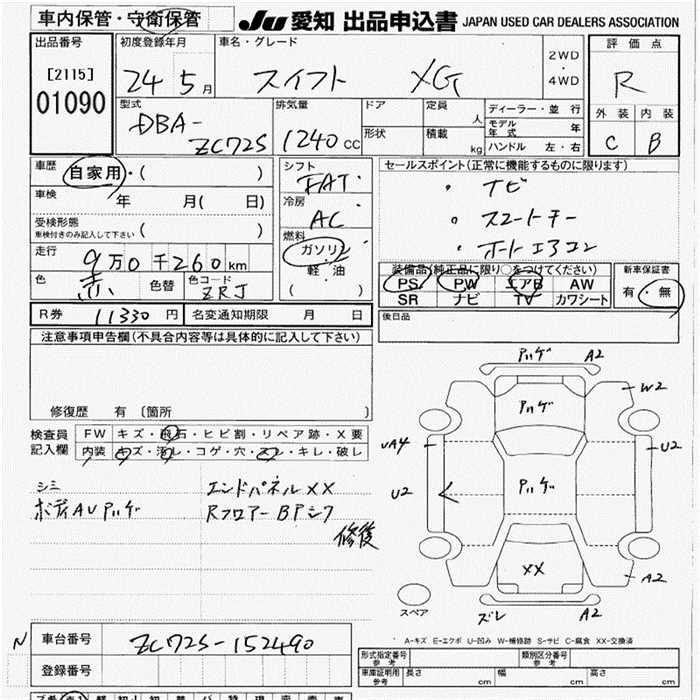 車内保管・守衛保管
JU 愛知 出品申込書 JAPAN USED CAR DEALERS ASSOCIATION
出品番号
[2115]
01090
初度登録年月
24 5月
車名・グレード
スイフト XG
2WD
・
4WD
評価点
R
外装 内装
C B
型式
DBA-
ZC72S
排気量
1240cc
ドア
形状
定員
人
積載
kg
ディーラー・並行
モデル年式 年
ハンドル 左・右
車歴
自家用・( )
車検
年 月( 日)
受検形態
車検付きのみ記入して下さい ( )
走行
9万0千260km
色
赤
色替
色コード
ZRJ
シフト
FAT
冷房
AC
燃料
ガソリン
軽・油
( )
セールスポイント(正常に機能するものに限ります)
・ナビ
・スマートキー
・オートエアコン
装備品(純正品に限り○をつけてください)
PS PW エアB AW
SR ナビ TV カワシート
新車保証書
有・無
R券 11330円
名変通知期限 月 日
後日品
注意事項申告欄(不具合内容等は具体的に記入して下さい)
修復歴 有 〔箇所 〕
検査員
記入欄
FW キズ・飛石・ヒビ割・リペア跡・X要
内装 キズ・汚レ・コゲ・穴・スレ・キレ・破レ
シミ
ボディAUアルゲ
エンドパネルXX
RフロアーBPシワ
修復
アルゲ A2
W2
アルゲ
UA4
U2
アルゲ
U2
XX
A2
ズレ A2
スペア
A-キズ E-エクボ U-凹み W-補修跡 S-サビ C-腐食 XX-交換済
N
車台番号
ZC72S-152490
登録番号
形式指定番号
参考
類別区分番号
参考
車庫証明用
参考
長さ cm
幅 cm
高さ cm